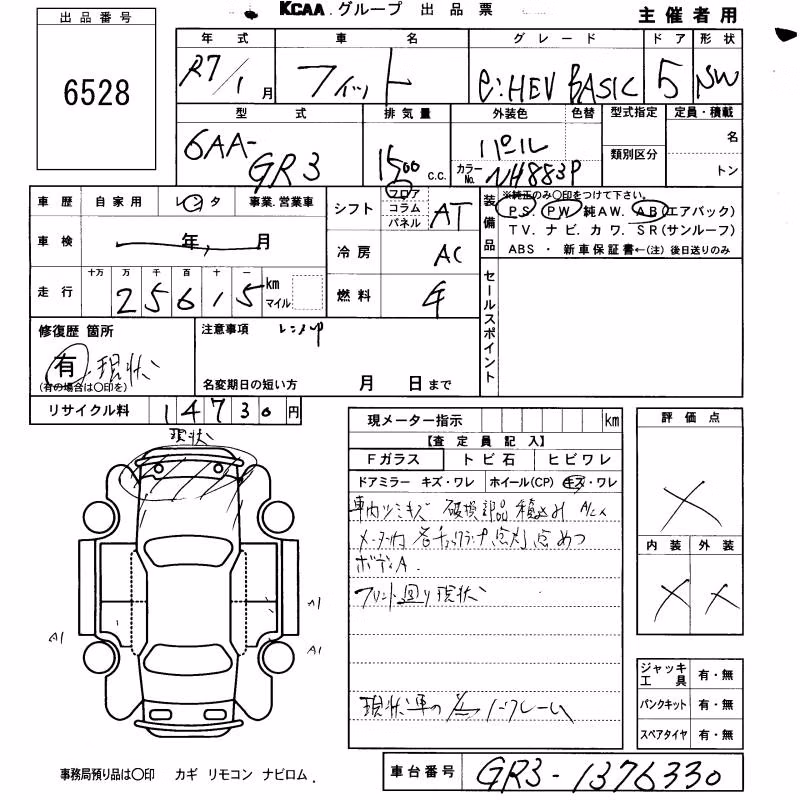 KCAA.グループ 出品票
主催者用
出品番号
6528
年式 車名 グレード ドア 形状
R7/1月 フィット e:HEV BASIC 5 SW
型式 排気量 外装色 色替 型式指定 定員・積載
6AA-GR3 1500 c.c. パール 名
カラーNo. NH883P 類別区分 トン
車歴 自家用 レンタ 事業.営業車
シフト フロア コラム パネル AT
装備品 ※純正のみ〇印をつけて下さい。
PS. PW. 純AW. AB(エアバック)
TV. ナビ. カワ. SR(サンルーフ)
ABS ・ 新車保証書←(注) 後日送りのみ
車検 年 月
冷房 AC
走行 十万 万 千 百 十 一
25615 km マイル
燃料
セールスポイント
修復歴 箇所
有 現状
(有の場合は〇印を)
注意事項 レンアップ
名変期日の短い方 月 日まで
リサイクル料 14730円
現メーター指示 km
【査定員記入】
Fガラス トビ石 ヒビワレ
ドアミラー キズ・ワレ ホイール(CP) キズ・ワレ
車内ツミキズ 破損部品積込み
メーター内 各チェックランプ点灯点めつ
ボディA.
フロント回り現状
現状車の為ノークレーム
評価点
×
内装 外装
× ×
現状
A1
A1
A1
ジャッキ工具 有・無
パンクキット 有・無
スペアタイヤ 有・無
事務局預り品は〇印 カギ リモコン ナビロム.
車台番号 GR3-1376330